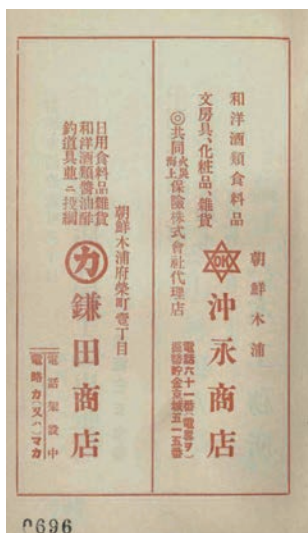 和洋酒類食料品
文房具、化粧品、雜貨
◎共同火災海上保險株式會社代理店
朝鮮木浦
OK
沖永商店
電話六十一番(電畧ヲ)
振替貯金京城五一五番
日用食料品雜貨
和洋酒類醬油酢
釣道具並ニ投網
朝鮮木浦府榮町壹丁目
カ
鎌田商店
電話架設中
電略カ(又ハ)マカ
0696